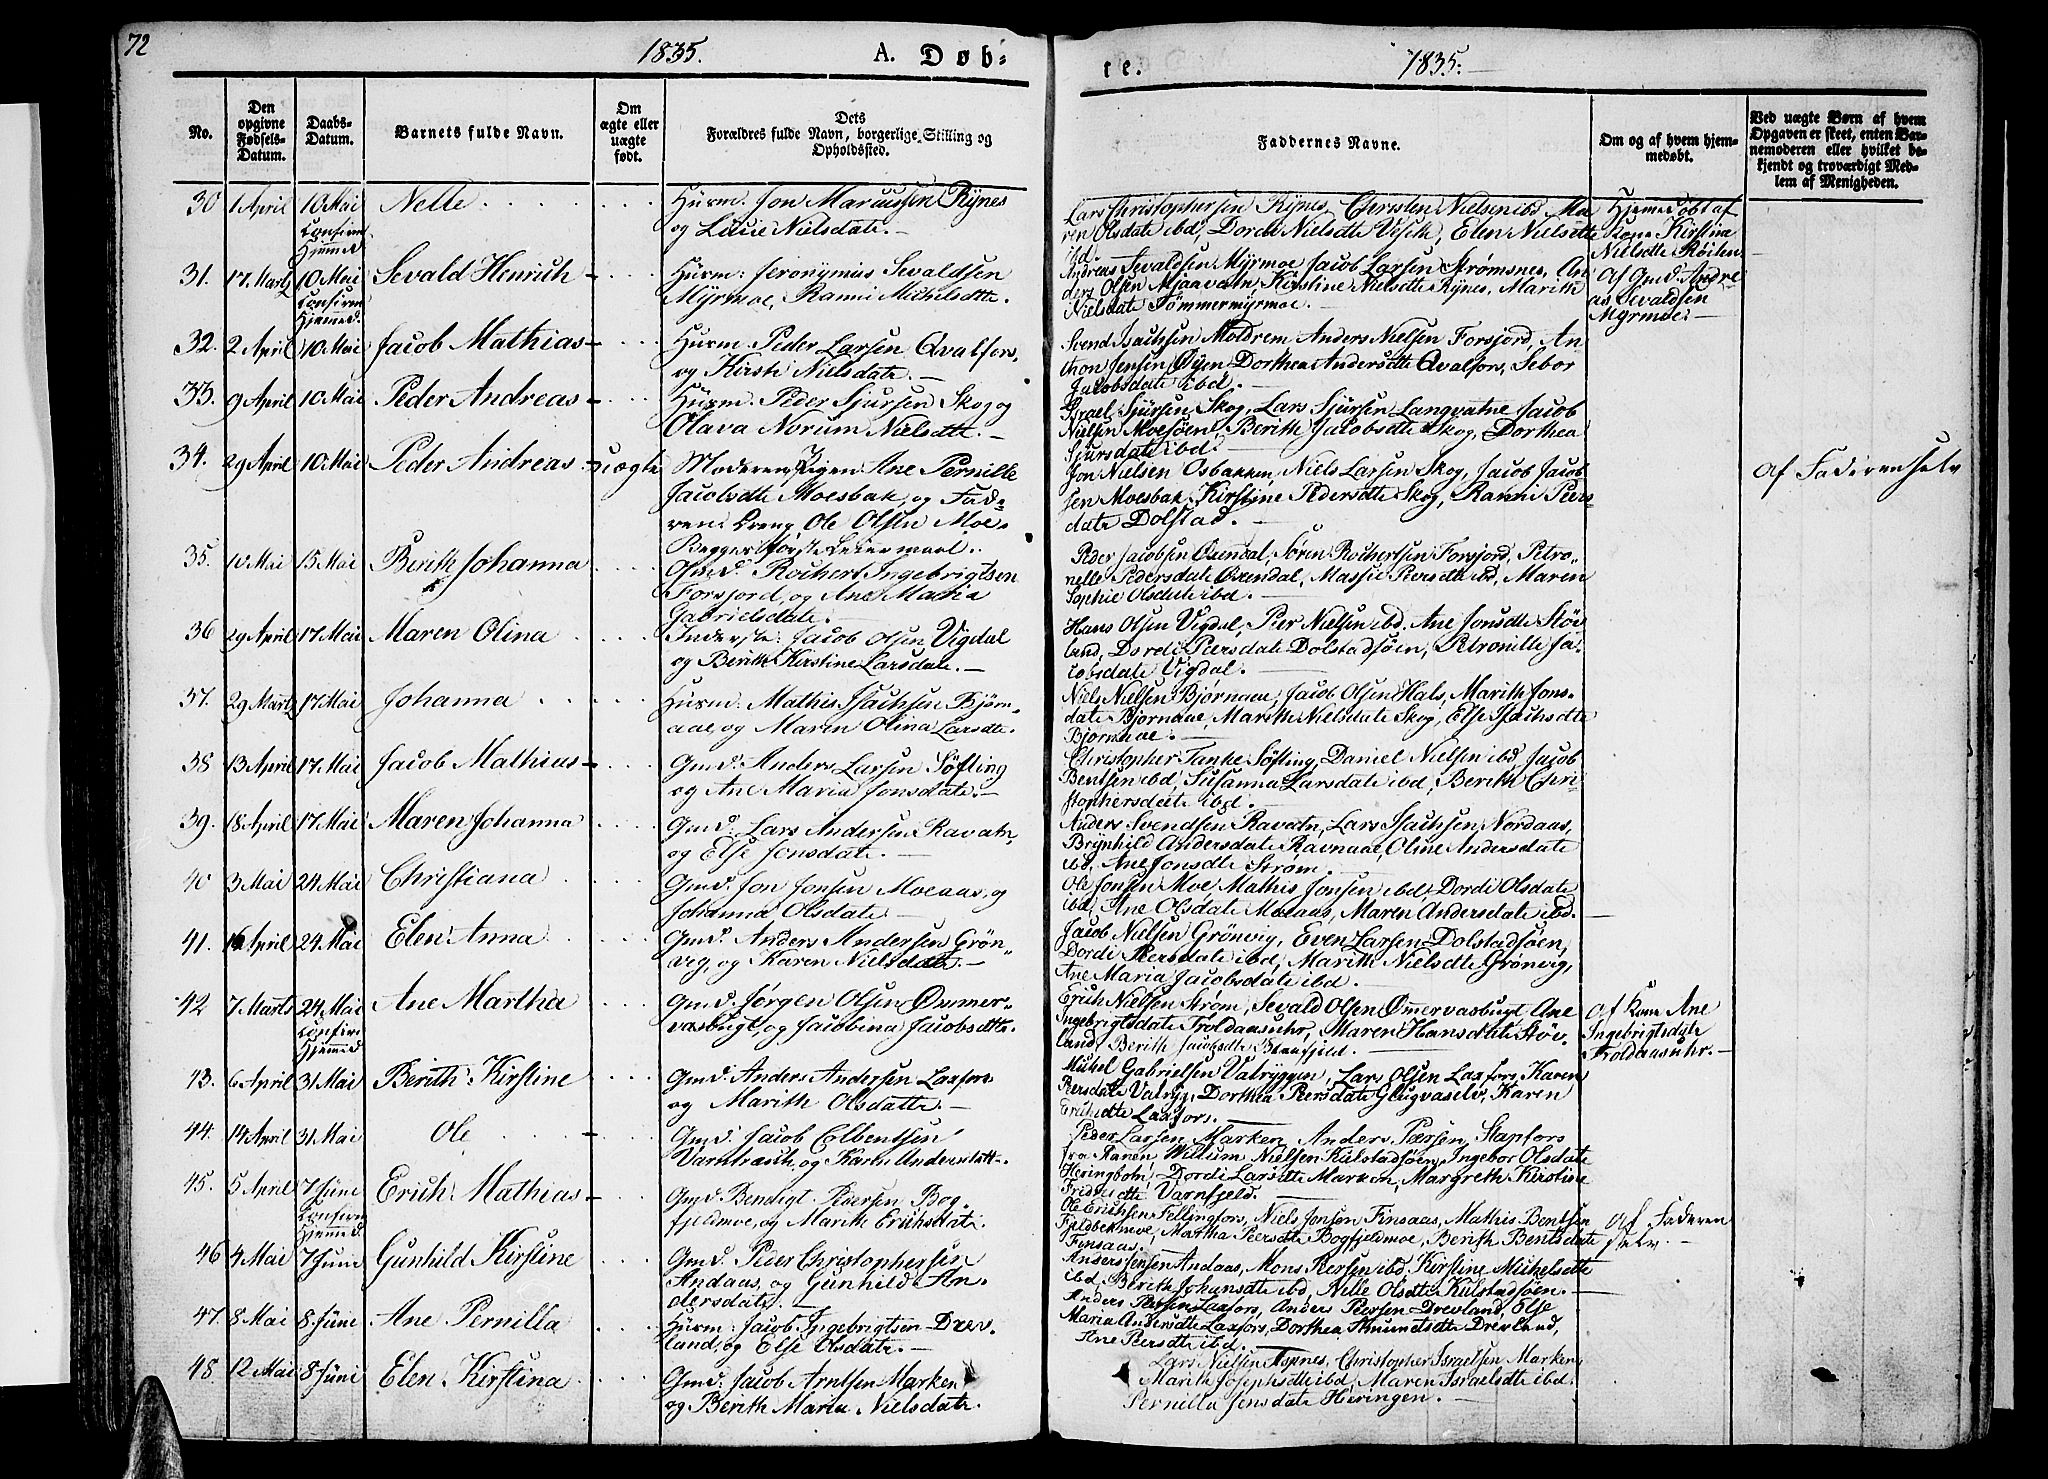 72
1835. A. Døb-
te. 1835.
No.
Den opgivne Fødsels-Datum.
Daabs-Datum.
Barnets fulde Navn.
Om ægte eller uægte født.
Dets Forældres fulde Navn, borgerlige Stilling og Opholdssted.
Faddernes Navne.
Om og af hvem hjemmedøbt.
Ved uægte Børn af hvem Opgaven er skeet, enten Barnemoderen eller hvilket bekjendt og troværdigt Medlem af Menigheden.
30 1 April 10 Mai Nelle Huusm: Jon Marcussen Rynes
Confirm. Hjemmed. og Lucie Nielsdatr.
Lars Christophersen Rynes, Christen Nielsen ibd Ma
ren Olsdatr ibd, Dordi Nielsdtr Veseth, Elen Nielsdtr
ibd.
Hjemmedøbt af
Kone Kirstina
Nielsdtr Røilen
31. 17 Marts 10 Mai Sevald Henrich Huusm: Jeronymus Sevaldsen
Confirm. Hjemmed. Myrmoe, Ranni Michelsdtr.
Andreas Sevaldsen Myrmoe Jacob Larsen Strømsnes, An
ders Olsen Mjaavatn, Kirstine Nielsdtr Rynes, Marith
Nielsdatr Tømmermyrmoe.
Af Gmd. Andre
as Sevaldsen
Myrmoe.
32. 2 April 10 Mai Jacob Mathias Huusm: Peder Larsen Qvalfors,
og Kirsti Nielsdatr.
Svend Isachsen Moldrem Anders Nielsen Forsjord, An
thon Jensen Øyen Dorthea Andersdtr Qvalfors, Sebor
Jacobsdatr ibd.
33. 9 April 10 Mai Peder Andreas Huusm. Peder Sjursen Skog og
Olava Norum Nielsdtr.
Israel Sjursen Skog, Lars Sjursen Langvatne Jacob
Nielsen Moesøen, Berith Jacobsdtr Skog, Dorthea
Sjursdatr ibd.
34. 29 April 10 Mai Peder Andreas uægte Moderen Pigen Ane Pernille
Jacobsdtr Moesbak, og Fad-
ren: Dreng Ole Olsen Moe.
Begges første Leiermaal.
Jon Nielsen Osbakken, Niels Larsen Skog, Jacob Jacob
sen Moesbak, Kirstine Pedersdtr Skog, Ranni Peers
datr Dolstad.
Af Faderen selv
35. 10 Mai 15 Mai Berith Johanna Gmd. Rochert Ingebrigtsen
Forsjord, og Ane Maria
Gabrielsdatr.
Peder Jacobsen Øxendal, Søren Rochertsen Forsjord, Petro-
nelle Pedersdatr Øxendal, Massie Peersdtr ibd, Maren
Sophie Olsdatr ibd.
36 29 April 17 Mai Maren Olina Inderste: Jacob Olsen Vigdal
og Berith Kirstine Larsdatr.
Hans Olsen Vigdal, Peer Nielsen ibd. Ane Jonsdtr Støv
land, Dordi Peersdatr Dolstadsøen, Petronille Ja-
cobsdatr Vigdal.
37. 29 Marts 17 Mai Johanna Huusm. Mathis Isachsen Bjørn
aae, og Maren Olina Larsdtr.
Niels Nielsen Bjørnaae, Jacob Olsen Hals, Marith Jons-
datr Bjørnaae, Marith Nielsdatr Skog, Else Isachsdtr
Bjørnaae.
38 13 April 17 Mai Jacob Mathias Gmd. Anders Larsen Søfting
og Ane Maria Jonsdatr.
Christopher Tanke Søfting, Daniel Nielsen ibd Jacob
Bentsen ibd, Susanna Larsdatr ibd, Berith Chri-
stophersdatr ibd.
39. 18 April 17 Mai Maren Johanna Gmd. Lars Andersen Ravatn,
og Else Jonsdatr.
Anders Svendsen Ravatn, Lars Isachsen Nordaas,
Brynhild Andersdatr Ravnaae, Oline Andersdatr
ibd. Ane Jonsdtr Strøm.
40 3 Mai 24 Mai Christiana Gmd. Jon Jonsen Moeaas, og
Johanna Olsdatr.
Ole Jonsen Moe Mathis Jonsen ibd, Dordi Olsdatr
ibd, Ane Olsdatr Moeaas, Maren Andersdatr ibd.
41. 16 April 24 Mai Elen Anna Gmd. Anders Andersen Grøn
veg, og Karen Nielsdatr.
Jacob Nielsen Grönvig, Even Larsen Dolstadsøen,
Dordi Peersdatr ibd, Marith Nielsdtr Grønvig,
Ane Maria Jacobsdatr ibd.
42 7 Marts 24 Mai Ane Martha Gmd. Jørgen Olsen Ømmer-
Confirm. Hjemmed vasbugt, og Jacobina Jacobsdtr.
Erich Nielsen Strøm, Sevald Olsen Ømmervasbugt Ane
Ingebrigtsdatr Troldaasuhr, Maren Hansdatr Støv
land, Berith Jacobsdtr Blaafjeld.
Af Kone Ane
Ingebrigtsdatr
Troldaasuhr.
43. 6 April 31 Mai Berith Kirstine Gmd. Anders Andersen Laxfors
og Marith Olsdatr.
Michel Gabrielsen Valryggen, Lars Olsen Laxfors, Karen
Peersdatr Valryg, Dorthea Peersdatr Glugvaselv, Karen
Erichsdtr Laxfors.
44. 14 April 31 Mai Ole Gmd. Jacob Elbentsen
Varntræsk, og Karen Andersdatr.
Peder Larsen Marken, Anders Peersen Stapfors
fra Ranen Willum Nielsen Kulstadsøen, Ingebor Olsdatr
Heringbotn, Dordi Larsdtr Marken, Margreth Kirstine
Fridricsdtr Varnfjeld.
45. 5 April 7 Juni Erich Mathias Gmd. Bendigt Pedersen Bog-
Confirm Hjemmed. fjeldmoe, og Marith Erichsdatr.
Ole Erichsen Fellingfors, Niels Jonsen Finsaas, Mathis Bentsen
Fjeldbekmoe, Martha Peersdtr Bogfjeldmoe, Berith Bentsdatr
Finsaas.
Af Faderen
selv.
46 4 Mai 7 Juni Gunhild Kirstine Gmd. Peder Christophersen
Andaas, og Gunhild An-
dersdatr.
Anders Jensen Andaas, Mons Peersen ibd. Kirstine Mickelsdtr
ibd, Berith Johansdtr ibd, Nille Olsdtr Kulstadsøen.
47. 8 Mai 8 Juni Ane Pernilla Huusm: Jacob Ingebrigtsen Drev
land, og Else Olsdatr.
Anders Peersen Laxfors, Anders Peersen Drevland, Else
Maria Andersdtr Laxfors, Dorthea Knuuntsdtr Drevland,
Ane Peersdtr ibd.
48 12 Mai 8 Juni Elen Kirstina Gmd. Jacob Arntsen Marken
og Berith Maria Nielsdatr.
Lars Nielsen Aspnes, Christopher Israelsen Marken
Marith Josephsdtr ibd, Maren Israelsdtr ibd.
Pernilla Jensdatr Heringen.